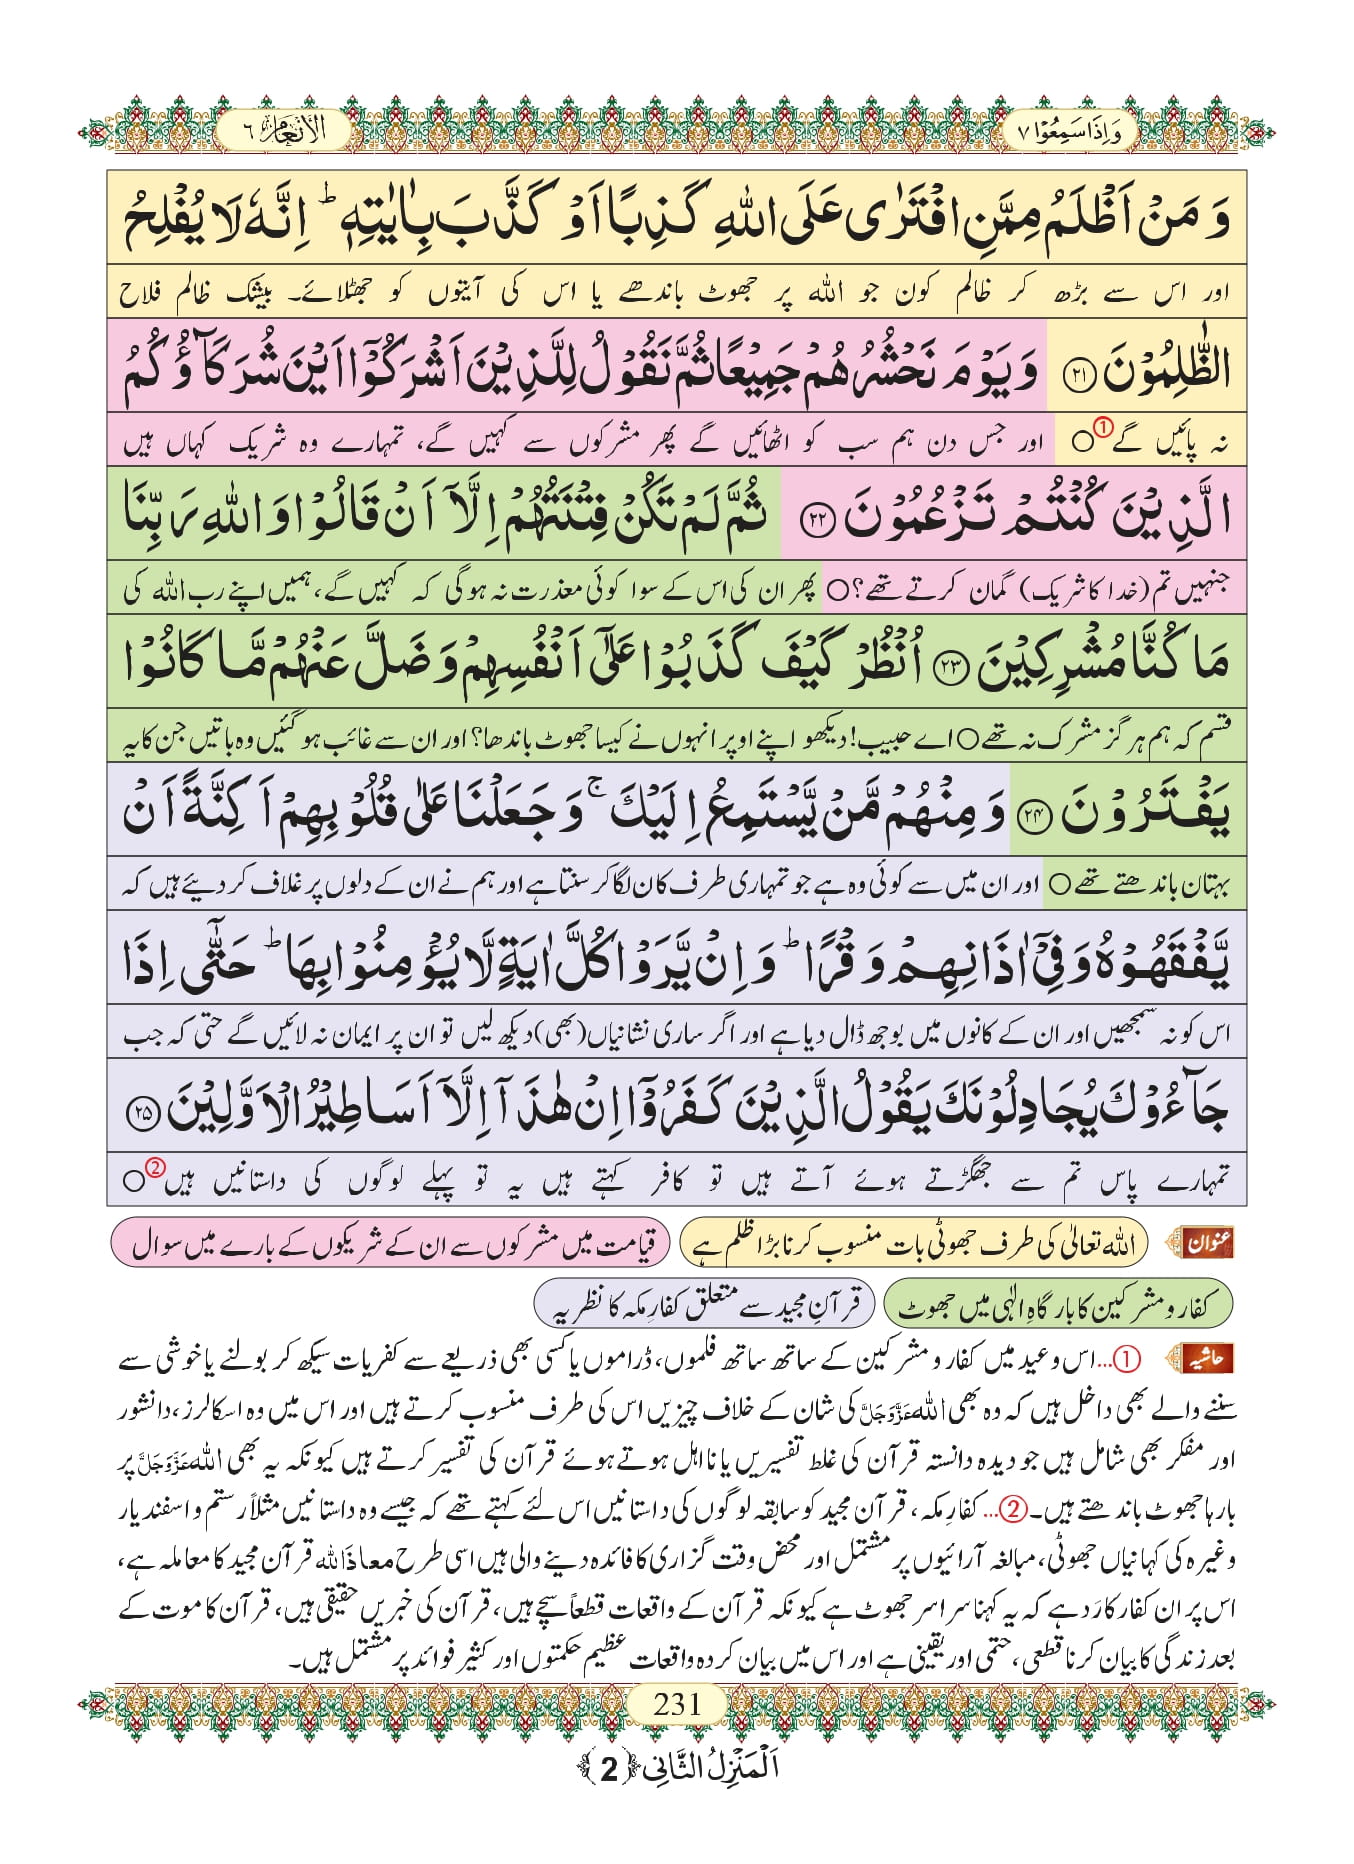 وَاِذَا سَمِعُوْا ۷
الأنعام ٦
وَ مَنْ اَظْلَمُ مِمَّنِ افْتَرٰى عَلَى اللّٰهِ كَذِبًا اَوْ كَذَّبَ بِاٰیٰتِهٖؕ اِنَّهٗ لَا یُفْلِحُ
اور اس سے بڑھ کر ظالم کون جو اللہ پر جھوٹ باندھے یا اس کی آیتوں کو جھٹلائے۔ بیشک ظالم فلاح
الظّٰلِمُوْنَ ﴿۲۱﴾ وَ یَوْمَ نَحْشُرُهُمْ جَمِیْعًا ثُمَّ نَقُوْلُ لِلَّذِیْنَ اَشْرَكُوْۤا اَیْنَ شُرَكَآؤُكُمُ
نہ پائیں گے① ○ اور جس دن ہم سب کو اٹھائیں گے پھر مشرکوں سے کہیں گے، تمہارے وہ شریک کہاں ہیں
الَّذِیْنَ كُنْتُمْ تَزْعُمُوْنَ ﴿۲۲﴾ ثُمَّ لَمْ تَكُنْ فِتْنَتُهُمْ اِلَّاۤ اَنْ قَالُوْا وَ اللّٰهِ رَبِّنَا
جنہیں تم (خدا کا شریک) گمان کرتے تھے؟ ○ پھر ان کی اس کے سوا کوئی معذرت نہ ہوگی کہ کہیں گے، ہمیں اپنے رب اللہ کی
مَا كُنَّا مُشْرِكِیْنَ ﴿۲۳﴾ اُنْظُرْ كَیْفَ كَذَبُوْا عَلٰۤى اَنْفُسِهِمْ وَ ضَلَّ عَنْهُمْ مَّا كَانُوْا
قسم کہ ہم ہرگز مشرک نہ تھے ○ اے حبیب! دیکھو اپنے اوپر انہوں نے کیسا جھوٹ باندھا؟ اور ان سے غائب ہوگئیں وہ باتیں جن کا یہ
یَفْتَرُوْنَ ﴿۲۴﴾ وَ مِنْهُمْ مَّنْ یَّسْتَمِعُ اِلَیْكَۚ وَ جَعَلْنَا عَلٰى قُلُوْبِهِمْ اَكِنَّةً اَنْ
بہتان باندھتے تھے ○ اور ان میں سے کوئی وہ ہے جو تمہاری طرف کان لگا کر سنتا ہے اور ہم نے ان کے دلوں پر غلاف کردیئے ہیں کہ
یَّفْقَهُوْهُ وَ فِیْۤ اٰذَانِهِمْ وَقْرًاؕ وَ اِنْ یَّرَوْا كُلَّ اٰیَةٍ لَّا یُؤْمِنُوْا بِهَاؕ حَتّٰۤى اِذَا
اس کو نہ سمجھیں اور ان کے کانوں میں بوجھ ڈال دیا ہے اور اگر ساری نشانیاں (بھی) دیکھ لیں تو ان پر ایمان نہ لائیں گے حتی کہ جب
جَآءُوْكَ یُجَادِلُوْنَكَ یَقُوْلُ الَّذِیْنَ كَفَرُوْۤا اِنْ هٰذَاۤ اِلَّاۤ اَسَاطِیْرُ الْاَوَّلِیْنَ ﴿۲۵﴾
تمہارے پاس تم سے جھگڑتے ہوئے آتے ہیں تو کافر کہتے ہیں یہ تو پہلے لوگوں کی داستانیں ہیں② ○
عنوان اللہ تعالیٰ کی طرف جھوٹی بات منسوب کرنا بڑا ظلم ہے قیامت میں مشرکوں سے ان کے شریکوں کے بارے میں سوال
کفار و مشرکین کا بارگاہِ الٰہی میں جھوٹ قرآنِ مجید سے متعلق کفارِ مکہ کا نظریہ
حاشیہ ①... اس وعید میں کفار و مشرکین کے ساتھ ساتھ فلموں، ڈراموں یا کسی بھی ذریعے سے کفریات سیکھ کر بولنے یا خوشی سے
سننے والے بھی داخل ہیں کہ وہ بھی اللہ عَزَّوَجَلَّ کی شان کے خلاف چیزیں اس کی طرف منسوب کرتے ہیں اور اس میں وہ اسکالرز، دانشور
اور مفکر بھی شامل ہیں جو دیدہ دانستہ قرآن کی غلط تفسیریں یا نااہل ہوتے ہوئے قرآن کی تفسیر کرتے ہیں کیونکہ یہ بھی اللہ عَزَّوَجَلَّ پر
بارہا جھوٹ باندھتے ہیں۔ ②... کفارِ مکہ، قرآن مجید کو سابقہ لوگوں کی داستانیں اس لئے کہتے تھے کہ جیسے وہ داستانیں مثلاً رستم و اسفندیار
وغیرہ کی کہانیاں جھوٹی، مبالغہ آرائیوں پر مشتمل اور محض وقت گزاری کا فائدہ دینے والی ہیں اسی طرح معاذَاللہ قرآن مجید کا معاملہ ہے،
اس پر ان کفار کا رَد ہے کہ یہ کہنا سراسر جھوٹ ہے کیونکہ قرآن کے واقعات قطعاً سچے ہیں، قرآن کی خبریں حقیقی ہیں، قرآن کا موت کے
بعد زندگی کا بیان کرنا قطعی، حتمی اور یقینی ہے اور اس میں بیان کردہ واقعات عظیم حکمتوں اور کثیر فوائد پر مشتمل ہیں۔
231
اَلْمَنْزِلُ الثَّانِی ﴿2﴾